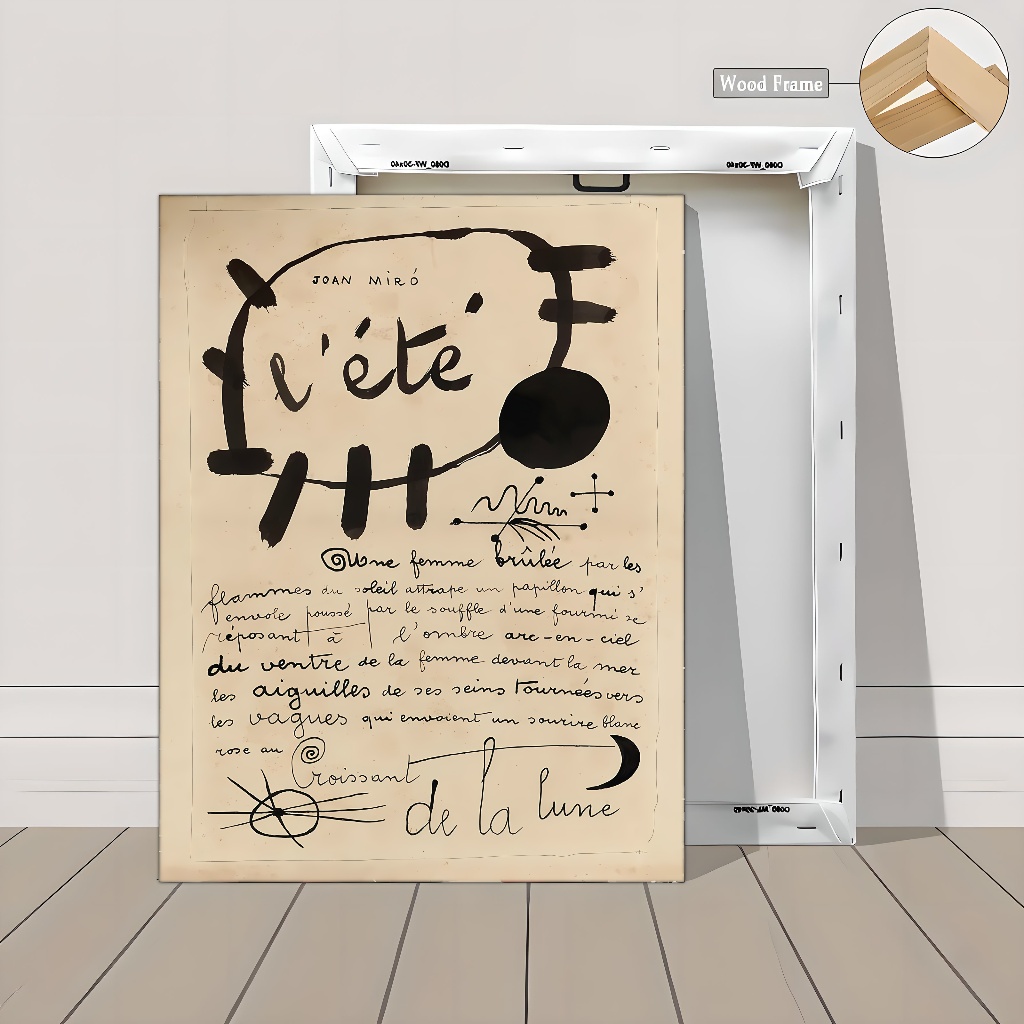 Wood Frame
JOAN MIRÓ
l'été
Une femme brûlée par les
flammes du soleil attrape un papillon qui s'
envole poussé par le souffle d'une fourmi se
réposant à l'ombre arc-en-ciel
du ventre de la femme devant la mer
les aiguilles de ses seins tournées vers
les vagues qui envoient un sourire blanc
rose au
Croissant
de la lune